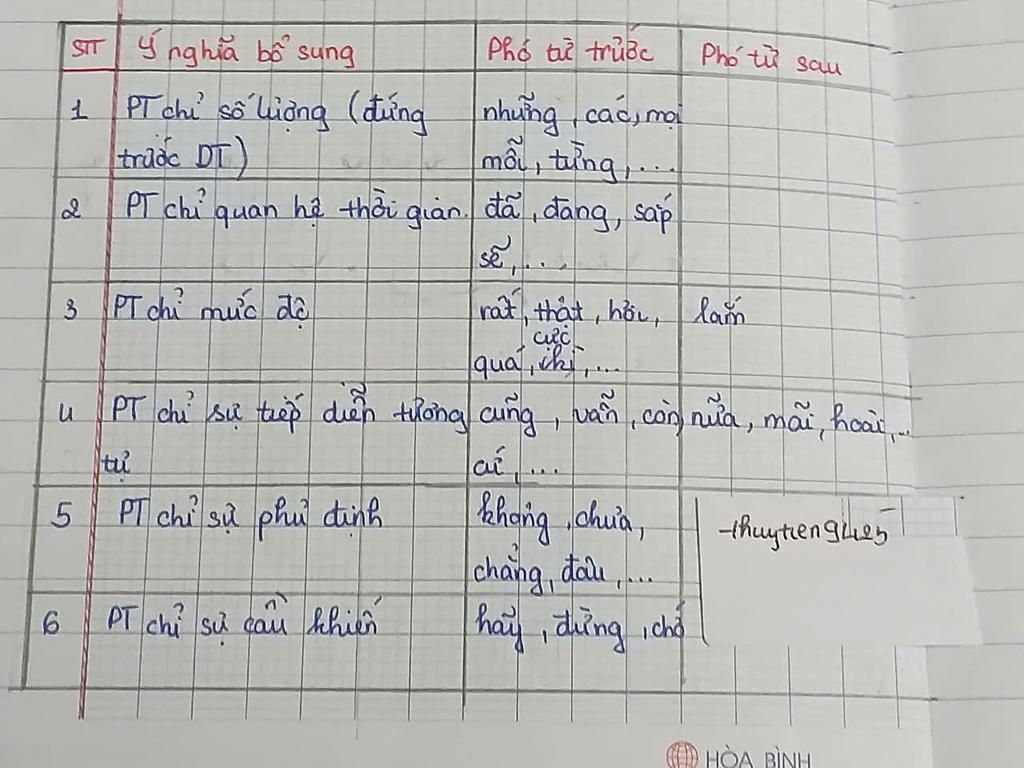 STT Ý nghĩa bổ sung Phó từ trước Phó từ sau
1 PT chỉ số lượng (đứng những, các, mọi
trước DT) mỗi, từng, ...
2 PT chỉ quan hệ thời gian. đã, đang, sắp
sẽ, ...
3 PT chỉ mức độ rất, thật, hơi, lắm
cực
quá, chỉ, ...
4 PT chỉ sự tiếp diễn tương cũng, vẫn, còn, nữa, mãi, hoài, ...
tự cứ, ...
5 PT chỉ sự phủ định không, chưa,
chẳng, đâu, ...
6 PT chỉ sự cầu khiến hãy, đừng, chớ
-thuytieng4e5
HÒA BÌNH